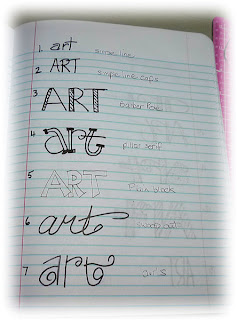 1. art simple line
2 ART simple line caps
3 ART barber Pole
4 art pillar serif
5 ART block
6 art
7 art